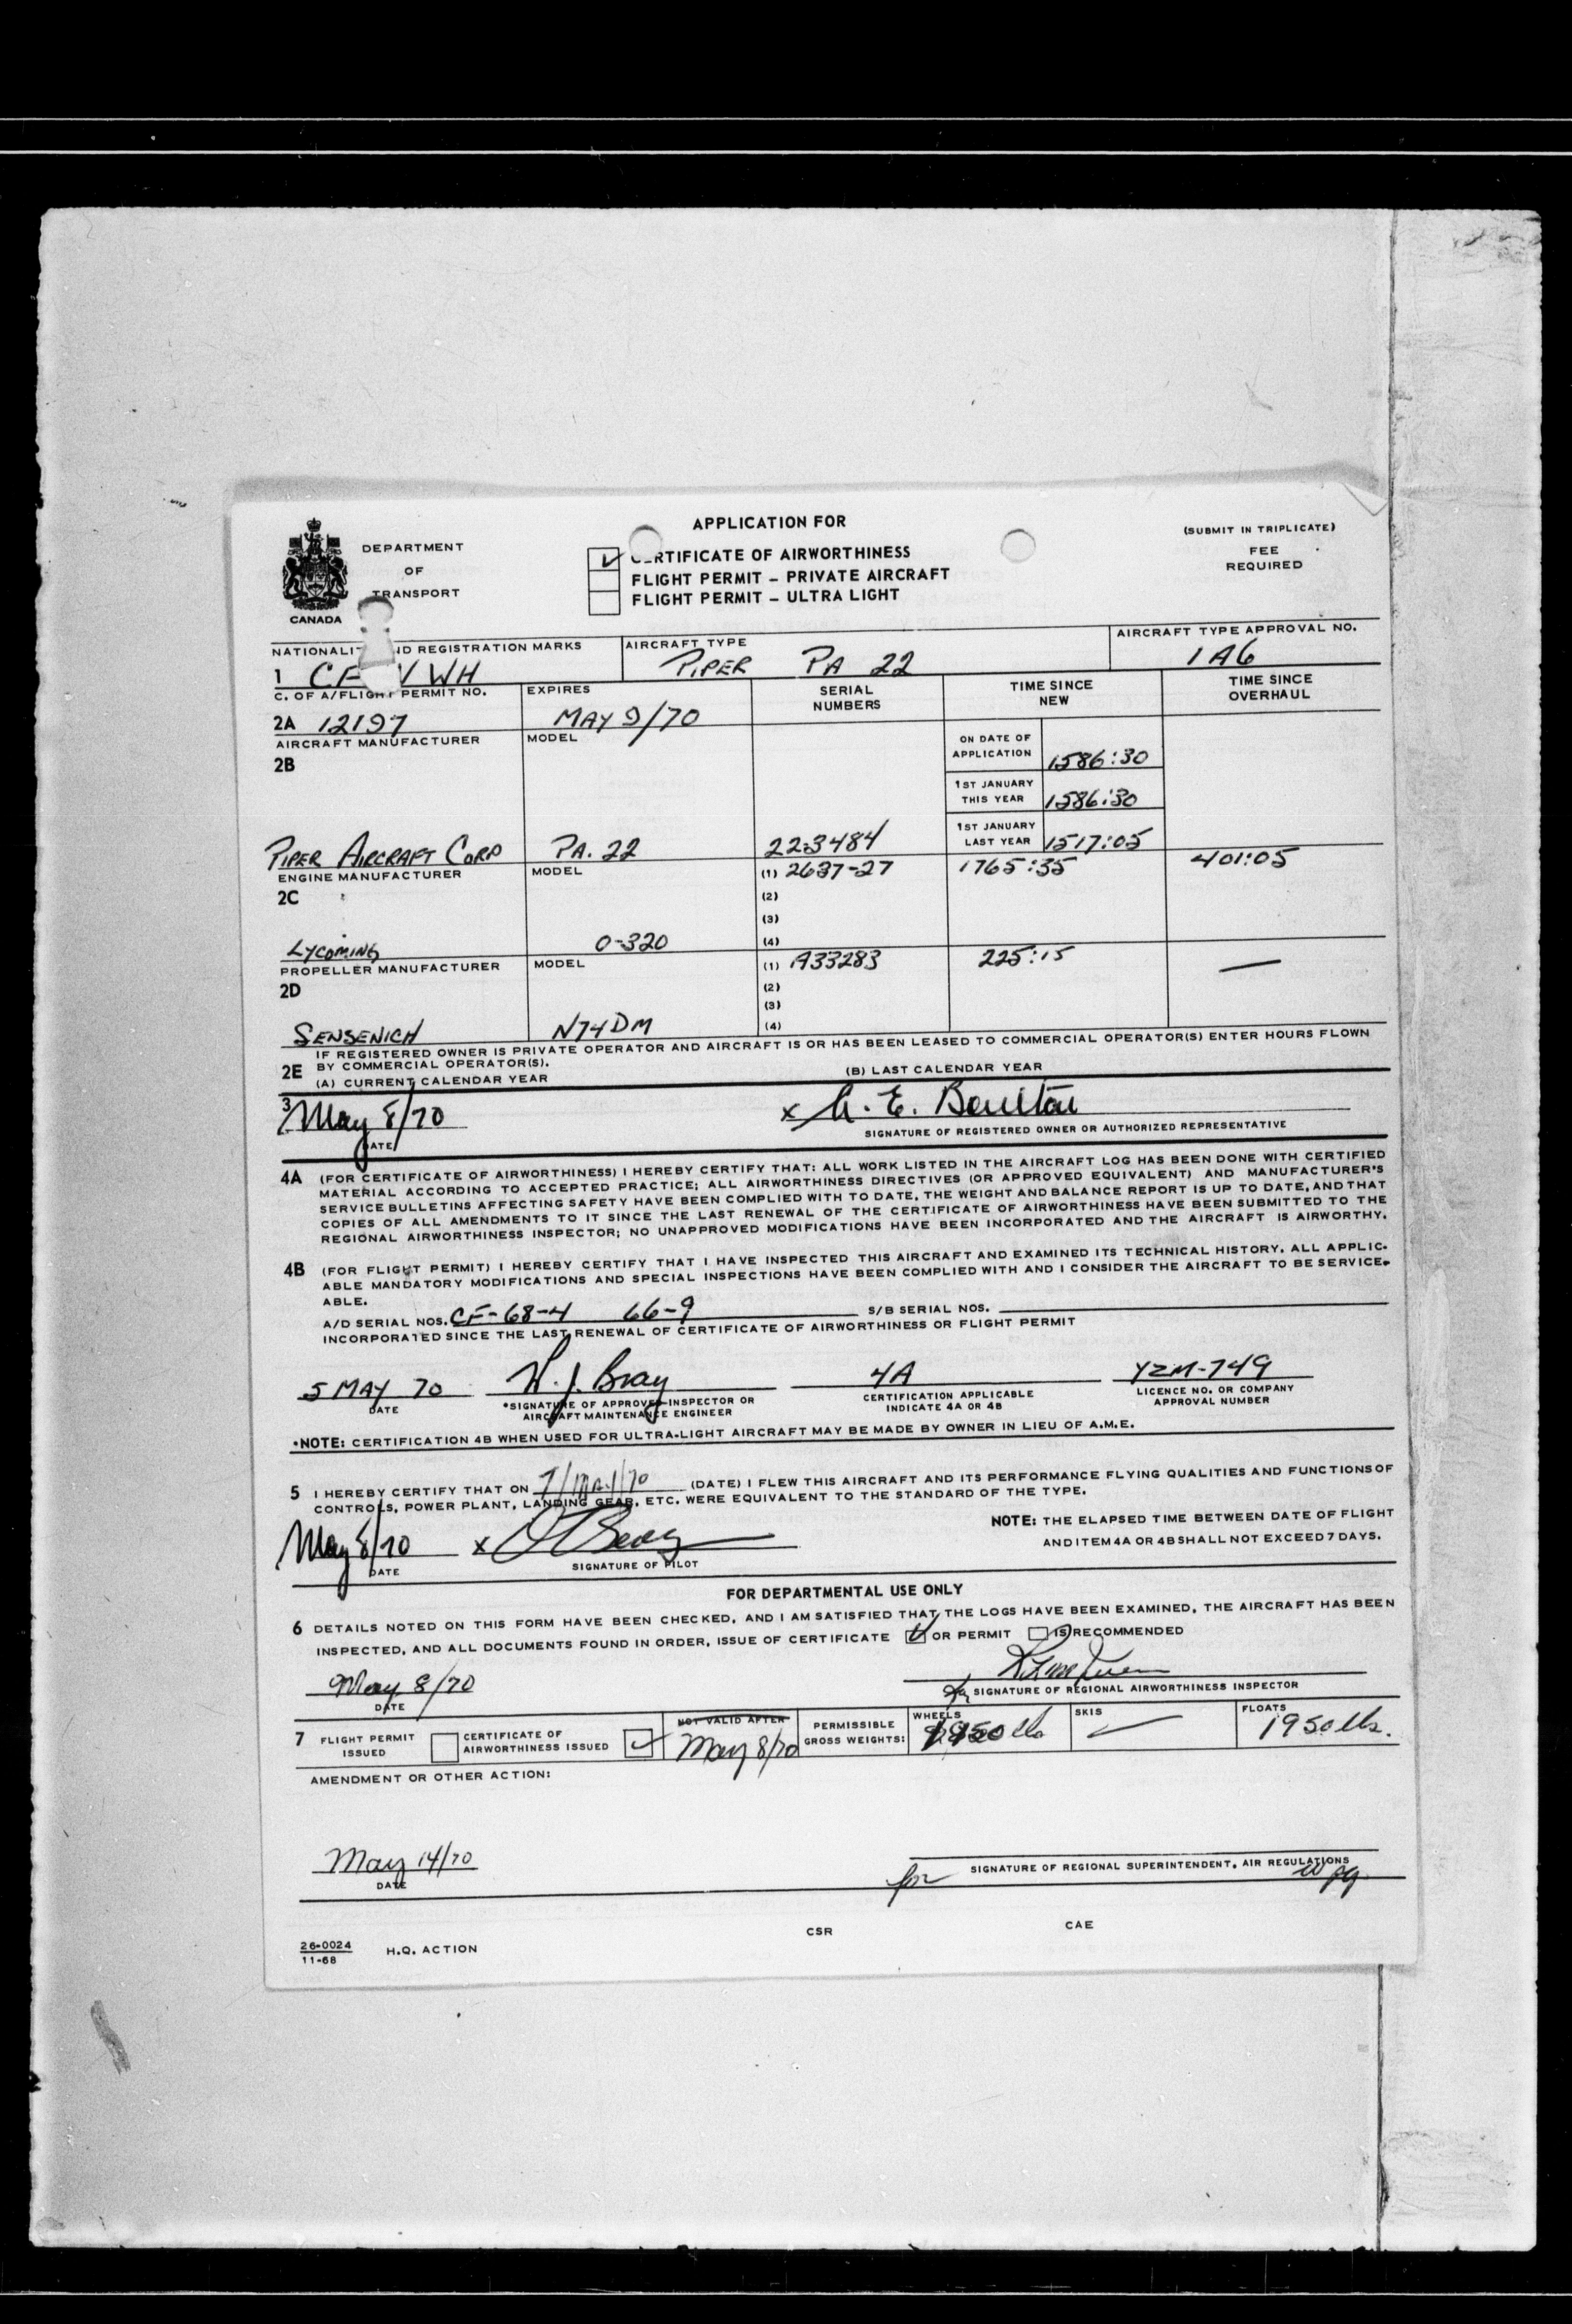 APPLICATION FOR
(SUBMIT IN TRIPLICATE)
DEPARTMENT
OF
TRANSPORT
CANADA
CERTIFICATE OF AIRWORTHINESS
FLIGHT PERMIT – PRIVATE AIRCRAFT
FLIGHT PERMIT – ULTRA LIGHT
FEE
REQUIRED
NATIONALIT ND REGISTRATION MARKS
1 CF VWH
AIRCRAFT TYPE
PIPER PA 22
AIRCRAFT TYPE APPROVAL NO.
1A6
C. OF A/FLIGHT PERMIT NO.
2A 12197
EXPIRES
MAY 9/70
SERIAL
NUMBERS
TIME SINCE
NEW
TIME SINCE
OVERHAUL
AIRCRAFT MANUFACTURER
2B
PIPER AIRCRAFT CORP
MODEL
PA. 22
22-3484
ON DATE OF
APPLICATION 1586:30
1ST JANUARY
THIS YEAR 1586:30
1ST JANUARY
LAST YEAR 1517:05
ENGINE MANUFACTURER
2C
LYCOMING
MODEL
O-320
(1) 2637-27
(2)
(3)
(4)
1765:35
401:05
PROPELLER MANUFACTURER
2D
SENSENICH
MODEL
N74DM
(1) A33283
(2)
(3)
(4)
225:15
—
2E IF REGISTERED OWNER IS PRIVATE OPERATOR AND AIRCRAFT IS OR HAS BEEN LEASED TO COMMERCIAL OPERATOR(S) ENTER HOURS FLOWN
BY COMMERCIAL OPERATOR(S).
(A) CURRENT CALENDAR YEAR (B) LAST CALENDAR YEAR
3 May 8/70
DATE
x E. Boulton
SIGNATURE OF REGISTERED OWNER OR AUTHORIZED REPRESENTATIVE
4A (FOR CERTIFICATE OF AIRWORTHINESS) I HEREBY CERTIFY THAT: ALL WORK LISTED IN THE AIRCRAFT LOG HAS BEEN DONE WITH CERTIFIED
MATERIAL ACCORDING TO ACCEPTED PRACTICE; ALL AIRWORTHINESS DIRECTIVES (OR APPROVED EQUIVALENT) AND MANUFACTURER'S
SERVICE BULLETINS AFFECTING SAFETY HAVE BEEN COMPLIED WITH TO DATE, THE WEIGHT AND BALANCE REPORT IS UP TO DATE, AND THAT
COPIES OF ALL AMENDMENTS TO IT SINCE THE LAST RENEWAL OF THE CERTIFICATE OF AIRWORTHINESS HAVE BEEN SUBMITTED TO THE
REGIONAL AIRWORTHINESS INSPECTOR; NO UNAPPROVED MODIFICATIONS HAVE BEEN INCORPORATED AND THE AIRCRAFT IS AIRWORTHY.
4B (FOR FLIGHT PERMIT) I HEREBY CERTIFY THAT I HAVE INSPECTED THIS AIRCRAFT AND EXAMINED ITS TECHNICAL HISTORY. ALL APPLIC-
ABLE MANDATORY MODIFICATIONS AND SPECIAL INSPECTIONS HAVE BEEN COMPLIED WITH AND I CONSIDER THE AIRCRAFT TO BE SERVICE-
ABLE.
A/D SERIAL NOS. CF-68-4 66-9 S/B SERIAL NOS.
INCORPORATED SINCE THE LAST RENEWAL OF CERTIFICATE OF AIRWORTHINESS OR FLIGHT PERMIT
5 MAY 70
DATE
W. J. Bray
*SIGNATURE OF APPROVED INSPECTOR OR
AIRCRAFT MAINTENANCE ENGINEER
4A
CERTIFICATION APPLICABLE
INDICATE 4A OR 4B
YZM-749
LICENCE NO. OR COMPANY
APPROVAL NUMBER
*NOTE: CERTIFICATION 4B WHEN USED FOR ULTRA-LIGHT AIRCRAFT MAY BE MADE BY OWNER IN LIEU OF A.M.E.
5 I HEREBY CERTIFY THAT ON 7/May/70 (DATE) I FLEW THIS AIRCRAFT AND ITS PERFORMANCE FLYING QUALITIES AND FUNCTIONS OF
CONTROLS, POWER PLANT, LANDING GEAR, ETC. WERE EQUIVALENT TO THE STANDARD OF THE TYPE.
May 8/70
DATE
x
SIGNATURE OF PILOT
NOTE: THE ELAPSED TIME BETWEEN DATE OF FLIGHT
AND ITEM 4A OR 4B SHALL NOT EXCEED 7 DAYS.
FOR DEPARTMENTAL USE ONLY
6 DETAILS NOTED ON THIS FORM HAVE BEEN CHECKED, AND I AM SATISFIED THAT THE LOGS HAVE BEEN EXAMINED, THE AIRCRAFT HAS BEEN
INSPECTED, AND ALL DOCUMENTS FOUND IN ORDER, ISSUE OF CERTIFICATE OR PERMIT IS RECOMMENDED
May 8/70
DATE
SIGNATURE OF REGIONAL AIRWORTHINESS INSPECTOR
7 FLIGHT PERMIT
ISSUED
CERTIFICATE OF
AIRWORTHINESS ISSUED
NOT VALID AFTER
May 8/70
PERMISSIBLE
GROSS WEIGHTS:
WHEELS
1950 lbs
SKIS
—
FLOATS
1950 lbs.
AMENDMENT OR OTHER ACTION:
May 14/70
DATE
for SIGNATURE OF REGIONAL SUPERINTENDENT, AIR REGULATIONS
Wpg.
CSR CAE
26-0024
11-68
H.Q. ACTION